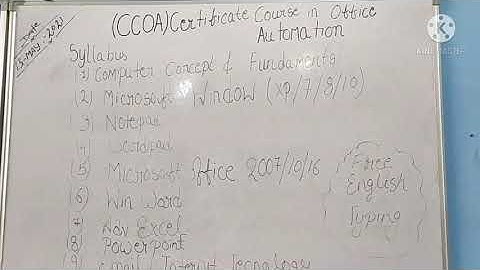 Date
13-MAY-2021
(CCOA) Certificate Course in Office
Automation
Syllabus
(1) Computer Concept & Fundaments
(2) Microsoft Window (XP/7/8/10)
(3) Notepad
(4) Wordpad
(5) Microsoft Office 2007/10/16
(6) Win Word
(7) Adv Excel
(8) PowerPoint
(9) email / Internet Tecnology
Free
English
Typing